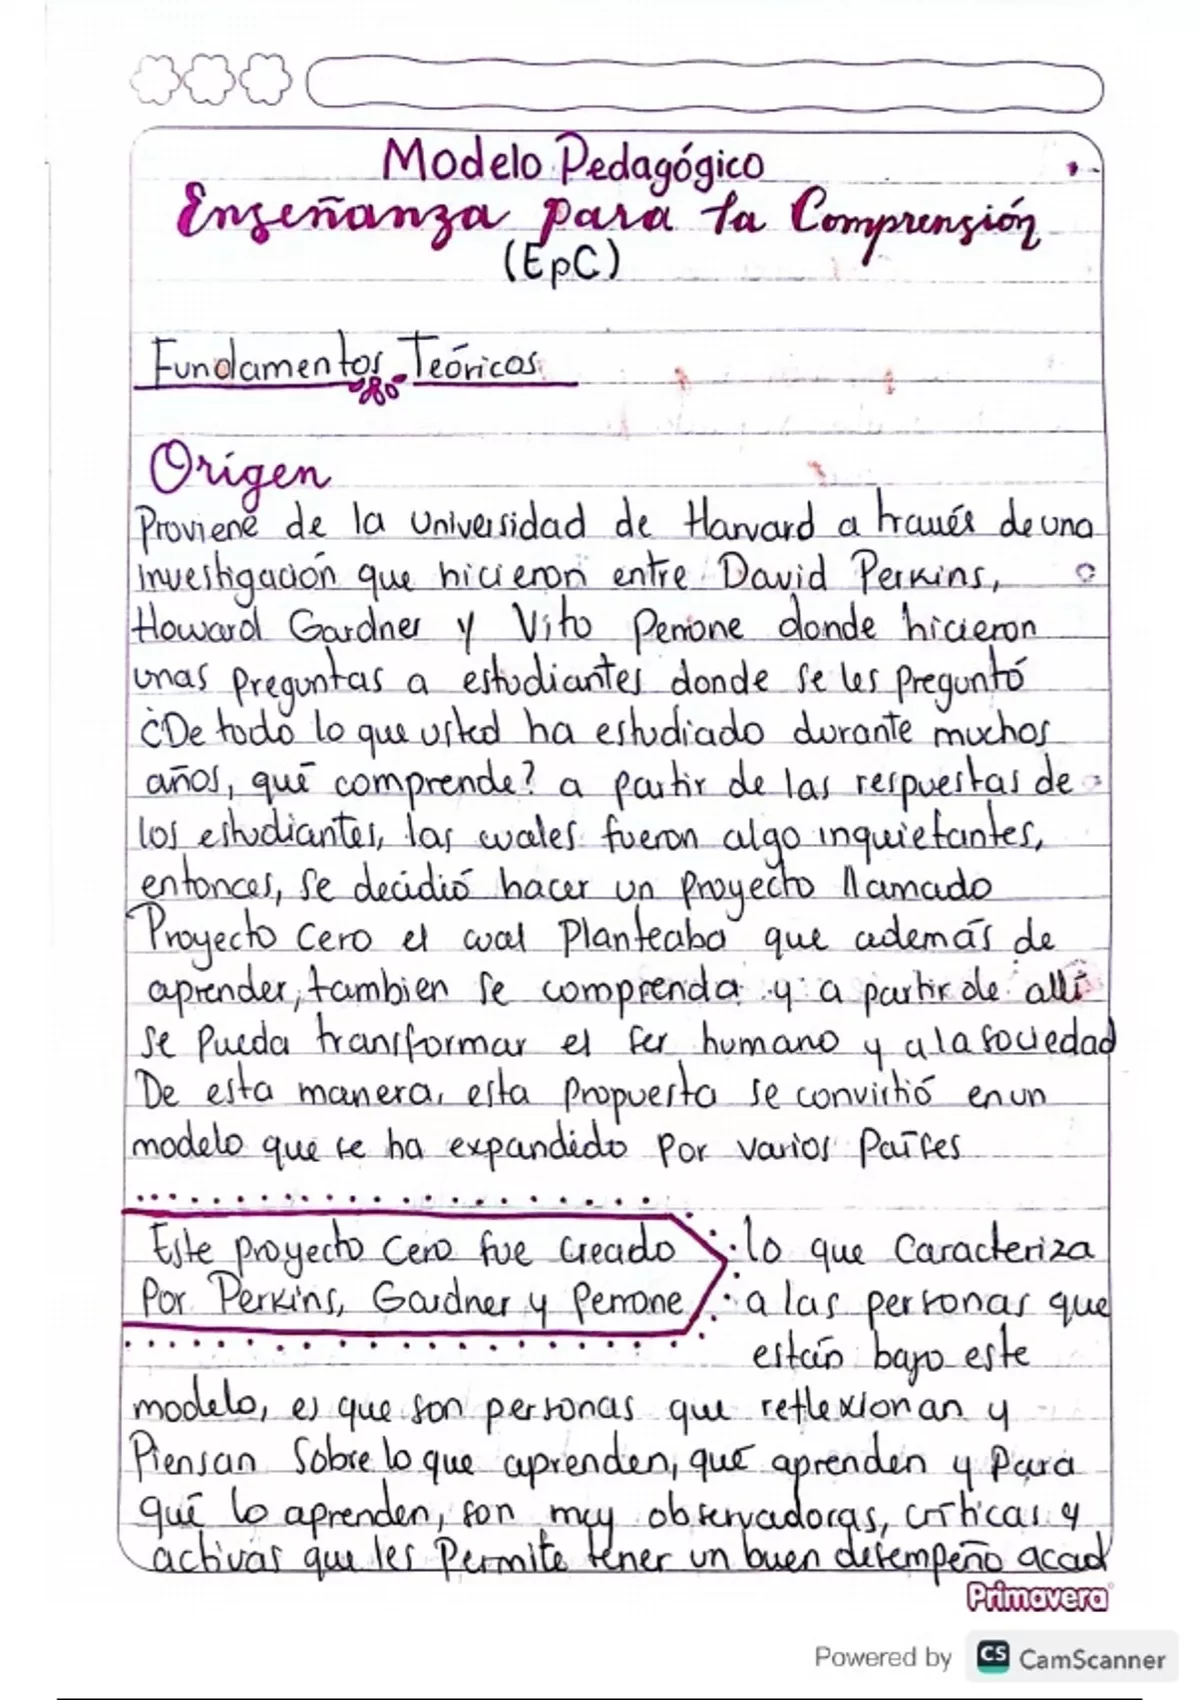 Modelo Pedagógico
Enseñanza para la Comprensión
(EpC)
Fundamentos Teóricos
Origen
Proviene de la Universidad de Harvard a través de una
investigación que hicieron entre David Perkins,
Howard Gardner y Vito Perrone donde hicieron
unas preguntas a estudiantes donde se les preguntó
¿De todo lo que usted ha estudiado durante muchos
años, qué comprende? a partir de las respuestas de
los estudiantes, las cuales fueron algo inquietantes,
entonces, se decidió hacer un proyecto llamado
Proyecto Cero el cual Planteaba que además de
aprender, tambien se comprenda y a partir de allí
se Pueda transformar el ser humano y a la sociedad
De esta manera, esta Propuesta se convirtió en un
modelo que se ha expandido Por varios Países
Este proyecto Cero fue Creado
Por Perkins, Gardner y Perrone
lo que Caracteriza
a las personas que
están bajo este
modelo, es que son personas que reflexionan y
Piensan Sobre lo que aprenden, qué aprenden y Para
qué lo aprenden, son muy observadoras, críticas y
activas que les Permite tener un buen desempeño acad
Primavera
Powered by CS CamScanner